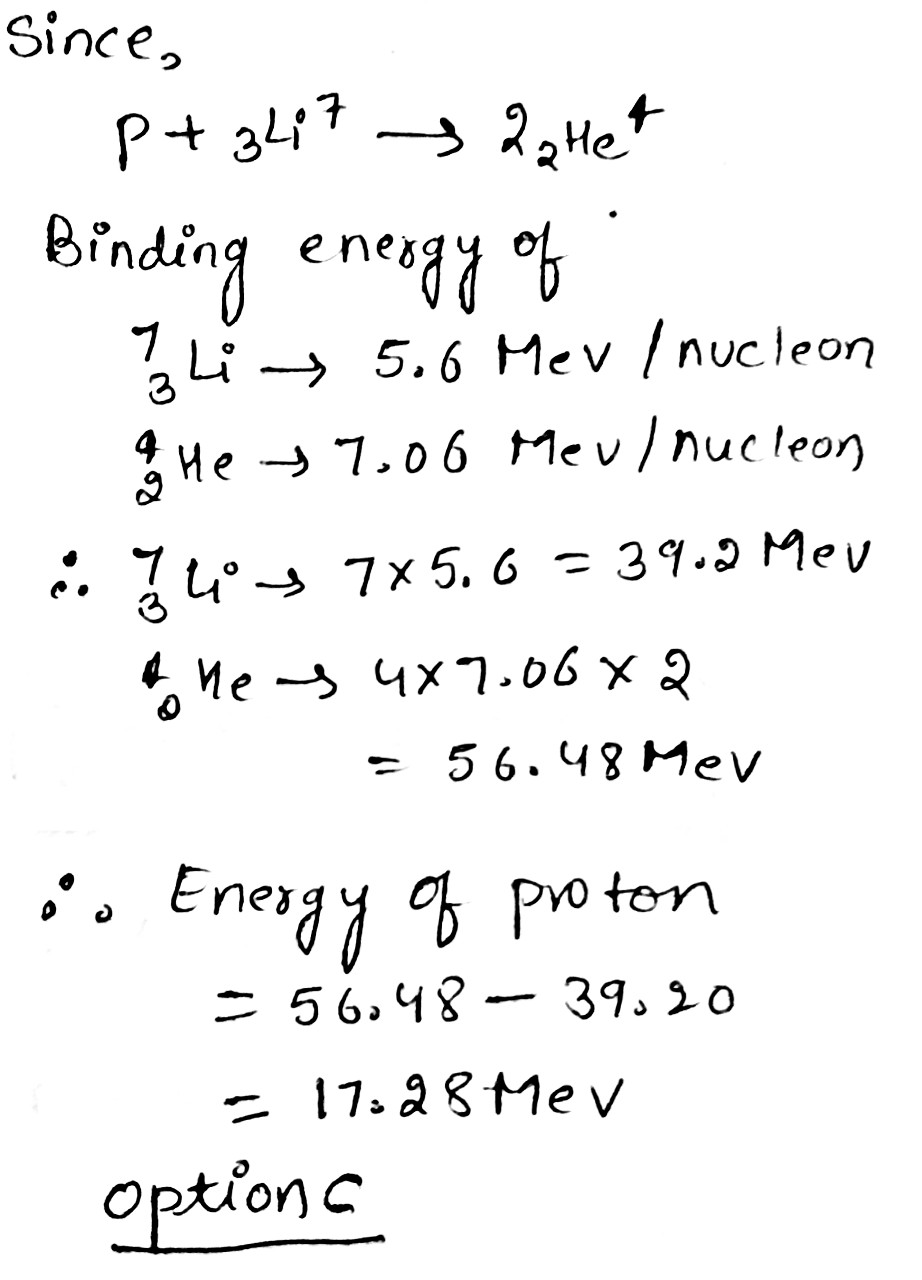 Since,
p + ₃Li⁷ → 2 ₂He⁴
Binding energy of
⁷₃Li → 5.6 Mev / nucleon
⁴₂He → 7.06 Mev / nucleon
∴ ⁷₃Li → 7 x 5.6 = 39.2 Mev
⁴₀He → 4x7.06 x 2
= 56.48 Mev
∴ Energy of proton
= 56.48 – 39.20
= 17.28 Mev
option c